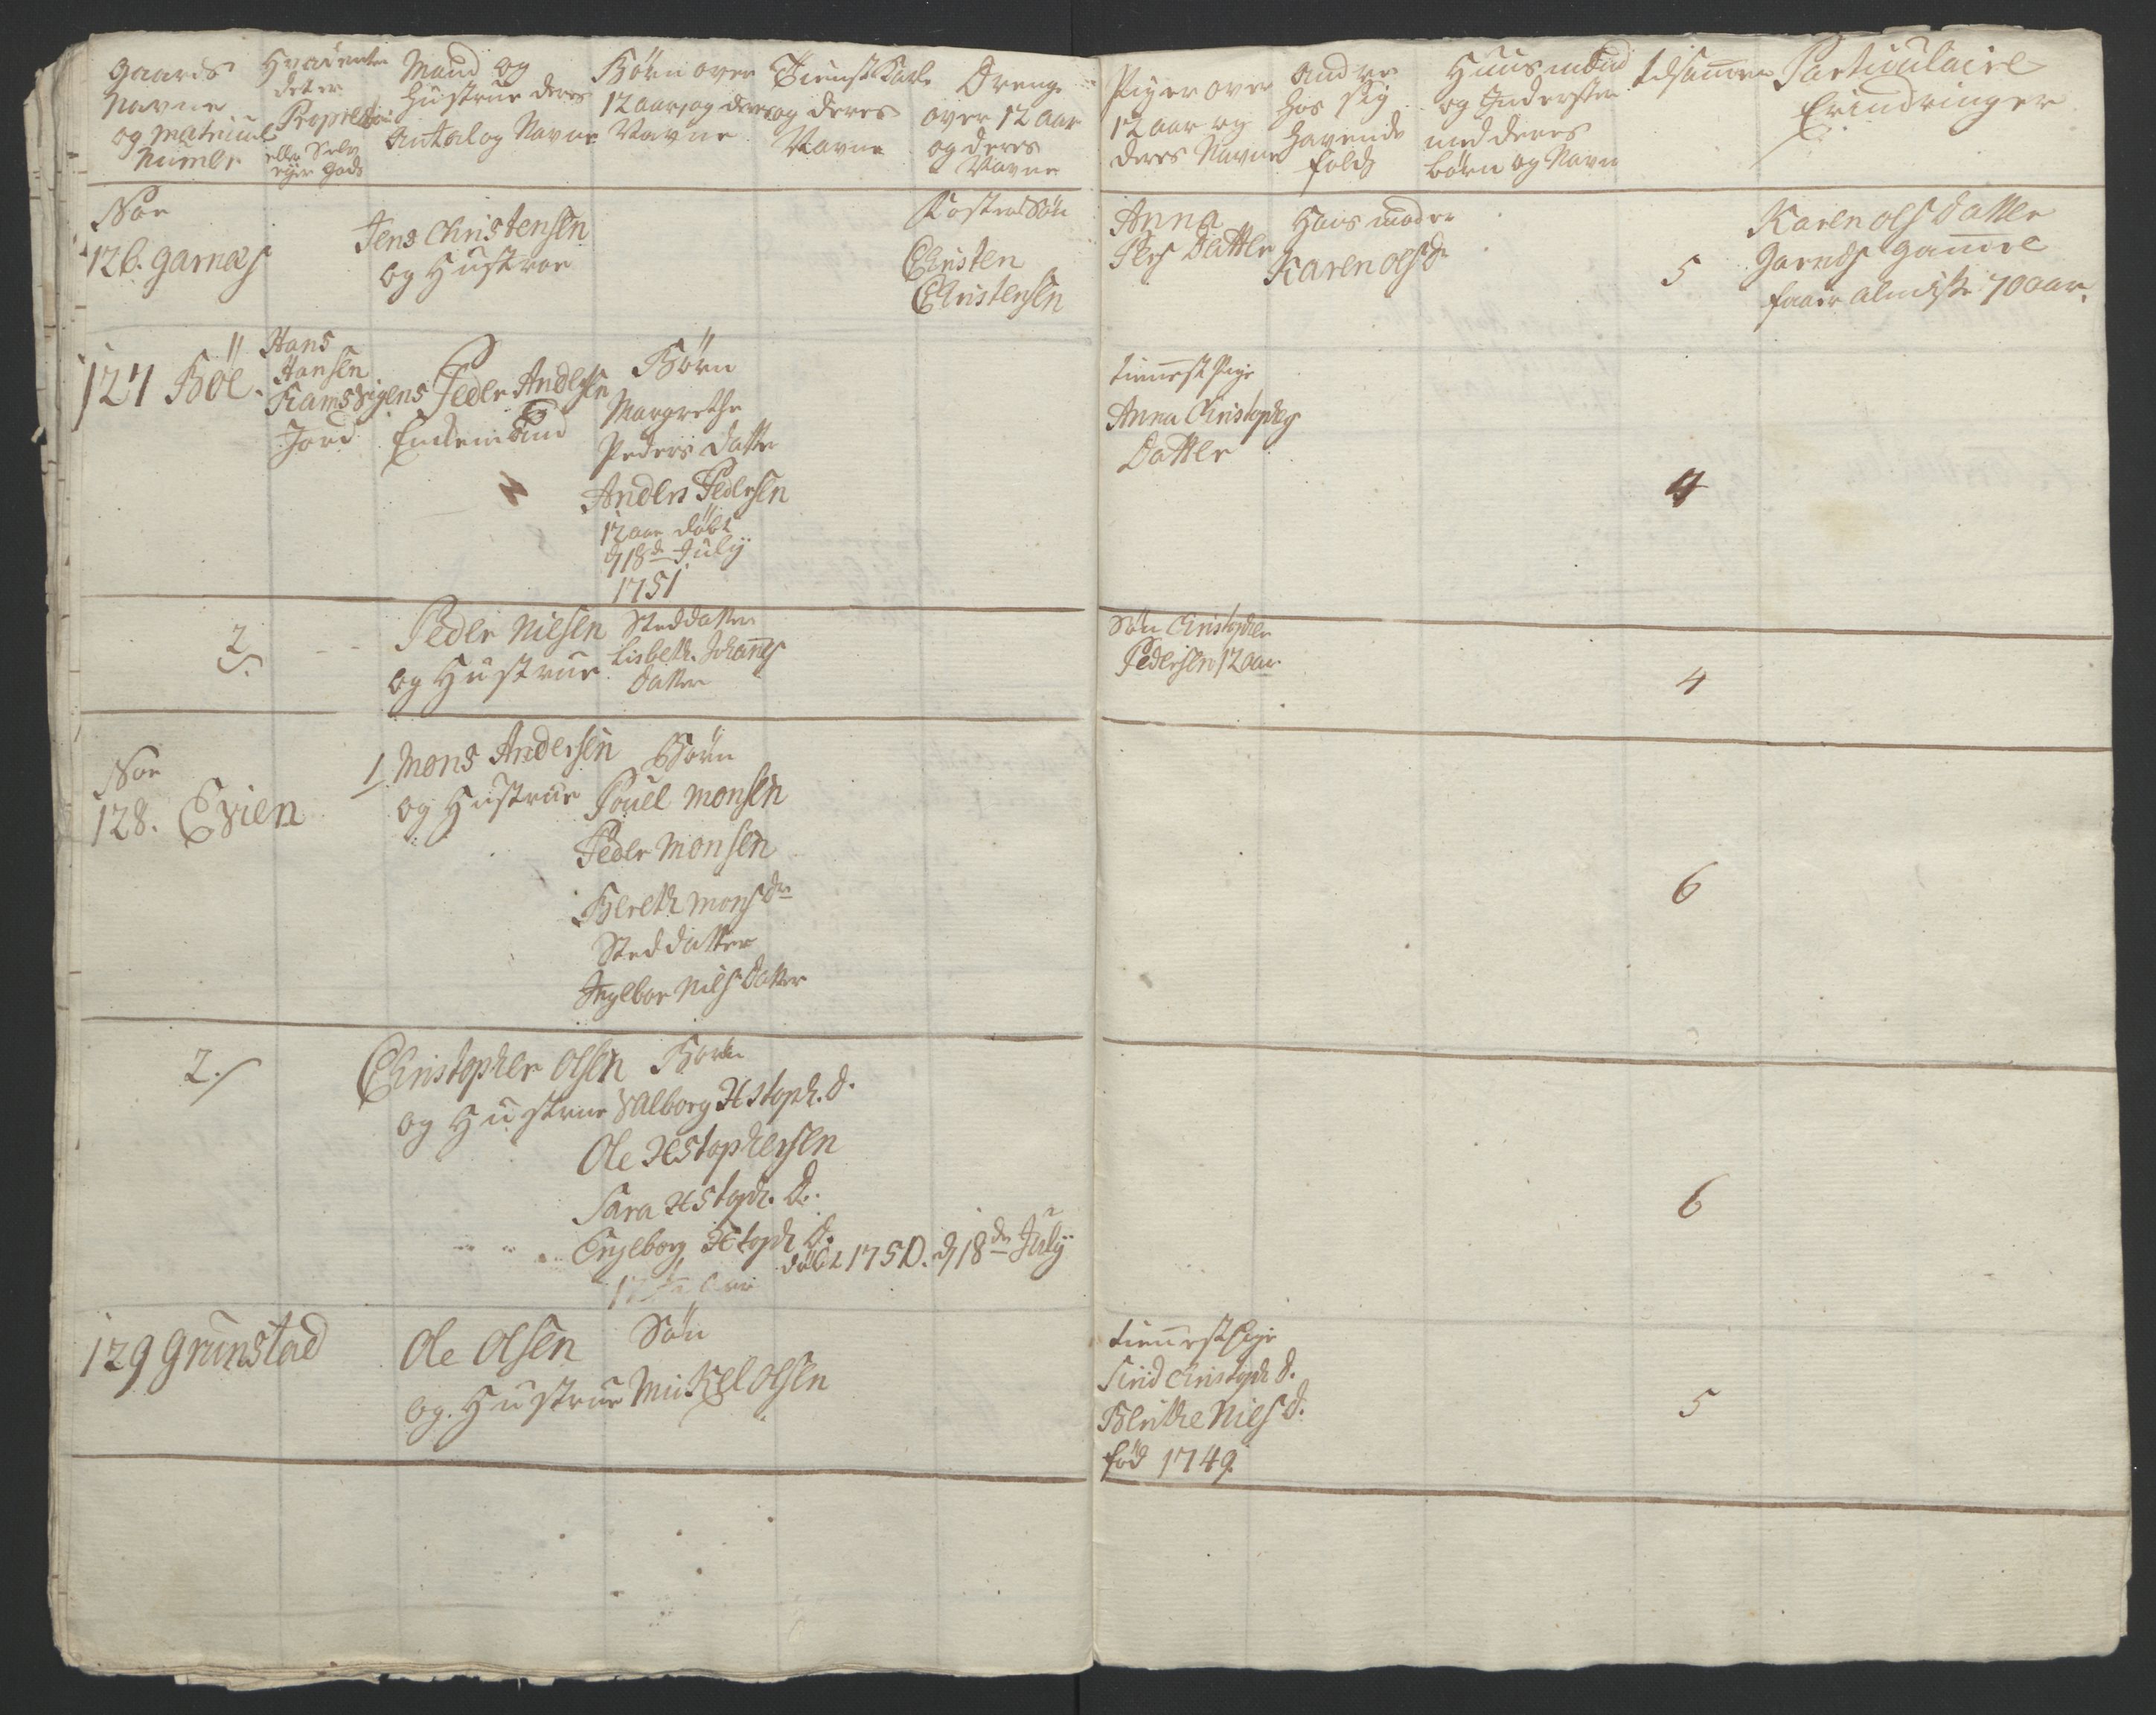 Gaards
Navne
og matricul
Numer
Hvad enten
det er
Proprietær
eller Selv
eyer Gods
Mand og
Hustrue deres
Antal og Navne
Børn over
12 aar, og deres
Navne
Tienst Karle
og deres
Navne
Drenge
over 12 aar
og deres
Navne
Piger over
12 aar og
deres Navne
Andre
hos sig
havende
folch
Huusmænd
og Inderster
med deres
børn og Navn
tilsamen
Particulaire
Erindringer
Noe
126. Garnæs
Jens Christensen
og Hustroe
Foster Søn
Christen
Christensen
Anna
Pers Datter
Hans moder
Karen olsdr
5
Karen olsdatter
Garnes gamel
faaer almisse 70 aar.
127 Böe.
Hans
Hansen
Ramsvigens
Jord
Peder Andersen
Enkemand
Børn
Margrethe
Peders datter
Anders Pedersen
12 aar døbt
d 18de July
1751
tienestpige
Anna Christophers
Datter
4
2
Peder Nielsen
og Hustrue
Steddatter
Lisbeth. Johanes
datter
Søn Christopher
Pedersen 12 aar
4
Noe
128. Evien
1 Mons Andersen
og Hustrue
Børn
Povel Monsen
Peder Monsen
Bereth Mons dr
Steddatter
Ingebor Nils datter
6
2.
Christopher Olsen
og Hustrue
Børn
Valborg Xstoph. d.
Ole Xstophersen
Sara Xstoph. d.
Engeborg Xstoph d.
døbt 1751. d 18de July
6
129 Grunstad
Ole Olsen
og Hustrue
Søn
Mickel Olsen
tienestpige
Sirid Christoph d.
Berithe Niels d.
fød 1749.
5